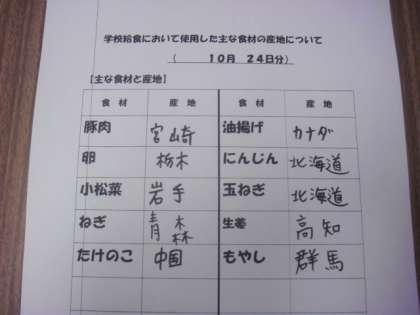 学校給食において使用した主な食材の産地について
(　10月　24日分)
【主な食材と産地】
食材　産地　食材　産地
豚肉　宮崎　油揚げ　カナダ
卵　栃木　にんじん　北海道
小松菜　岩手　玉ねぎ　北海道
ねぎ　青森　生姜　高知
たけのこ　中国　もやし　群馬